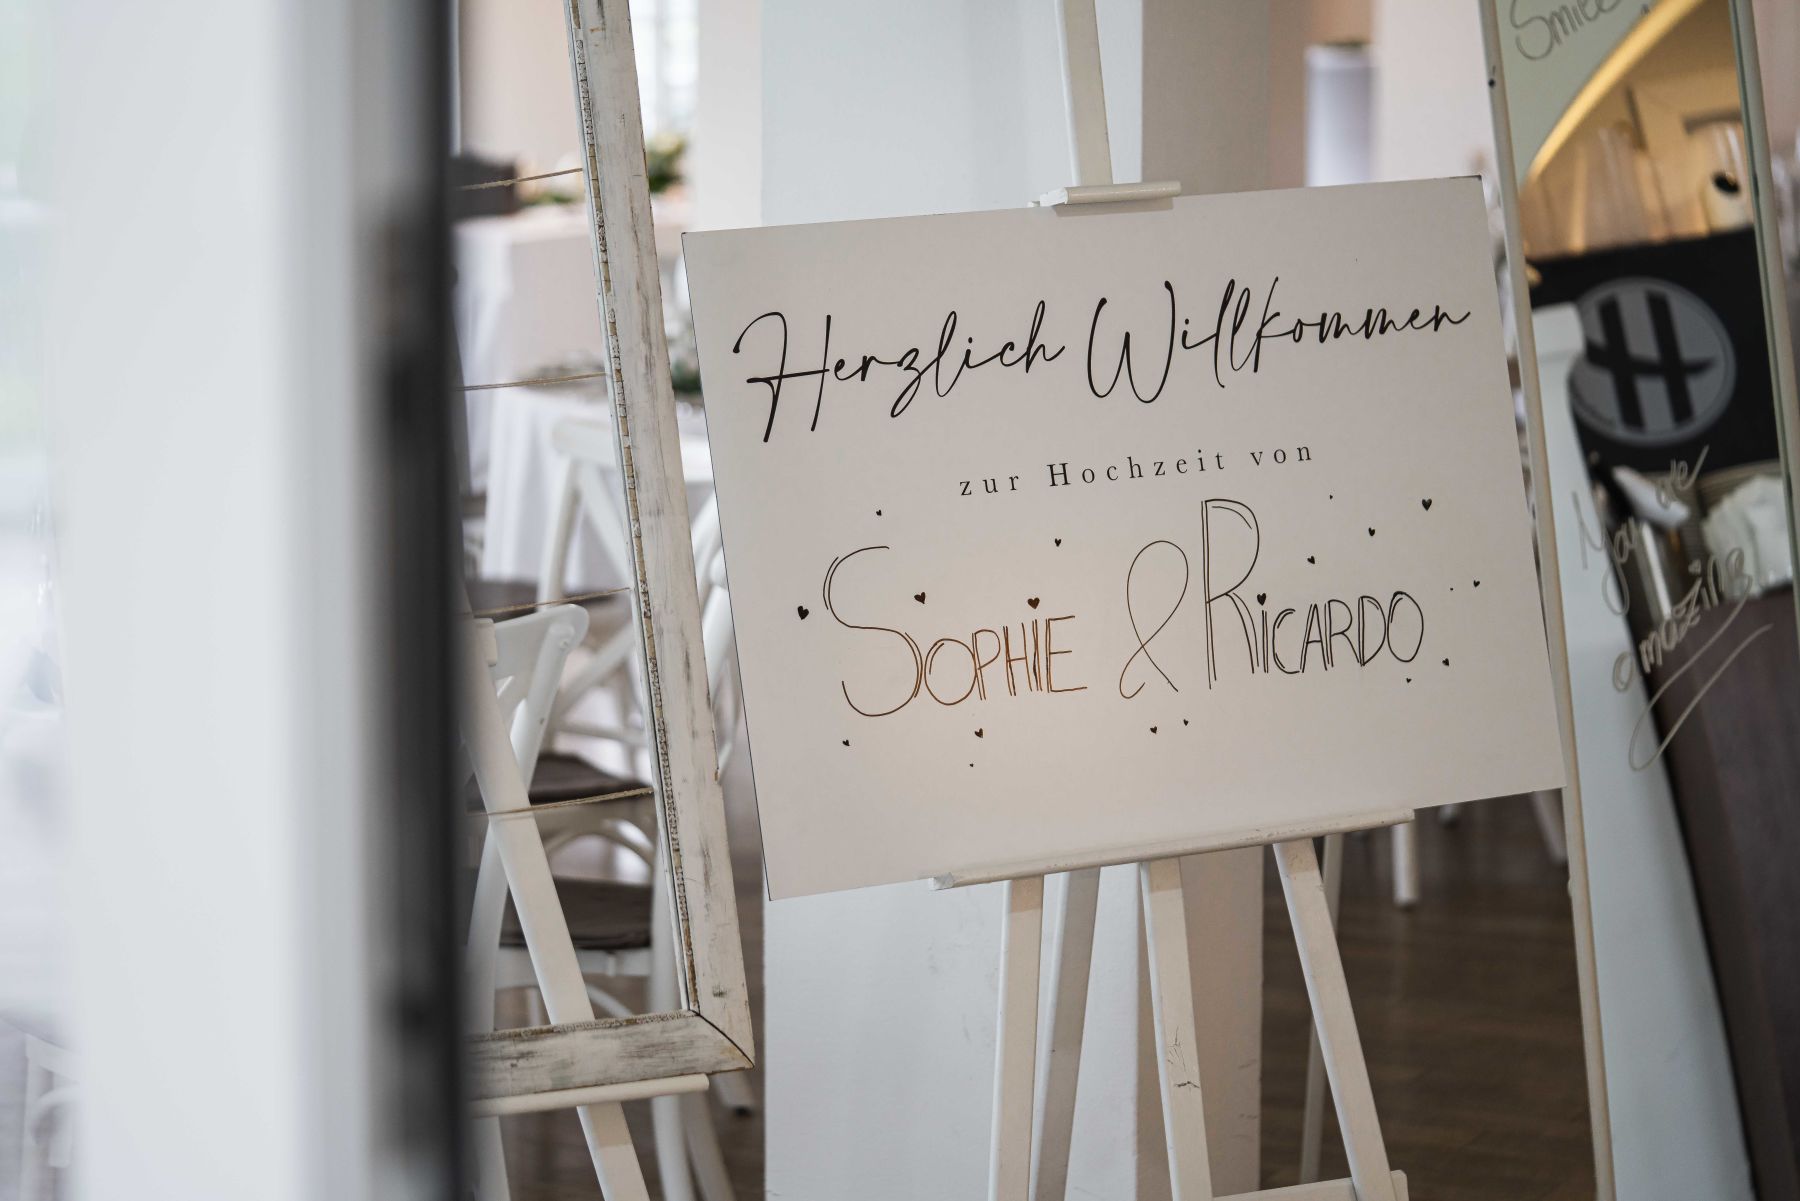 Herzlich Willkommen
zur Hochzeit von
SOPHIE & RICARDO
Smile
H
You are
amazing